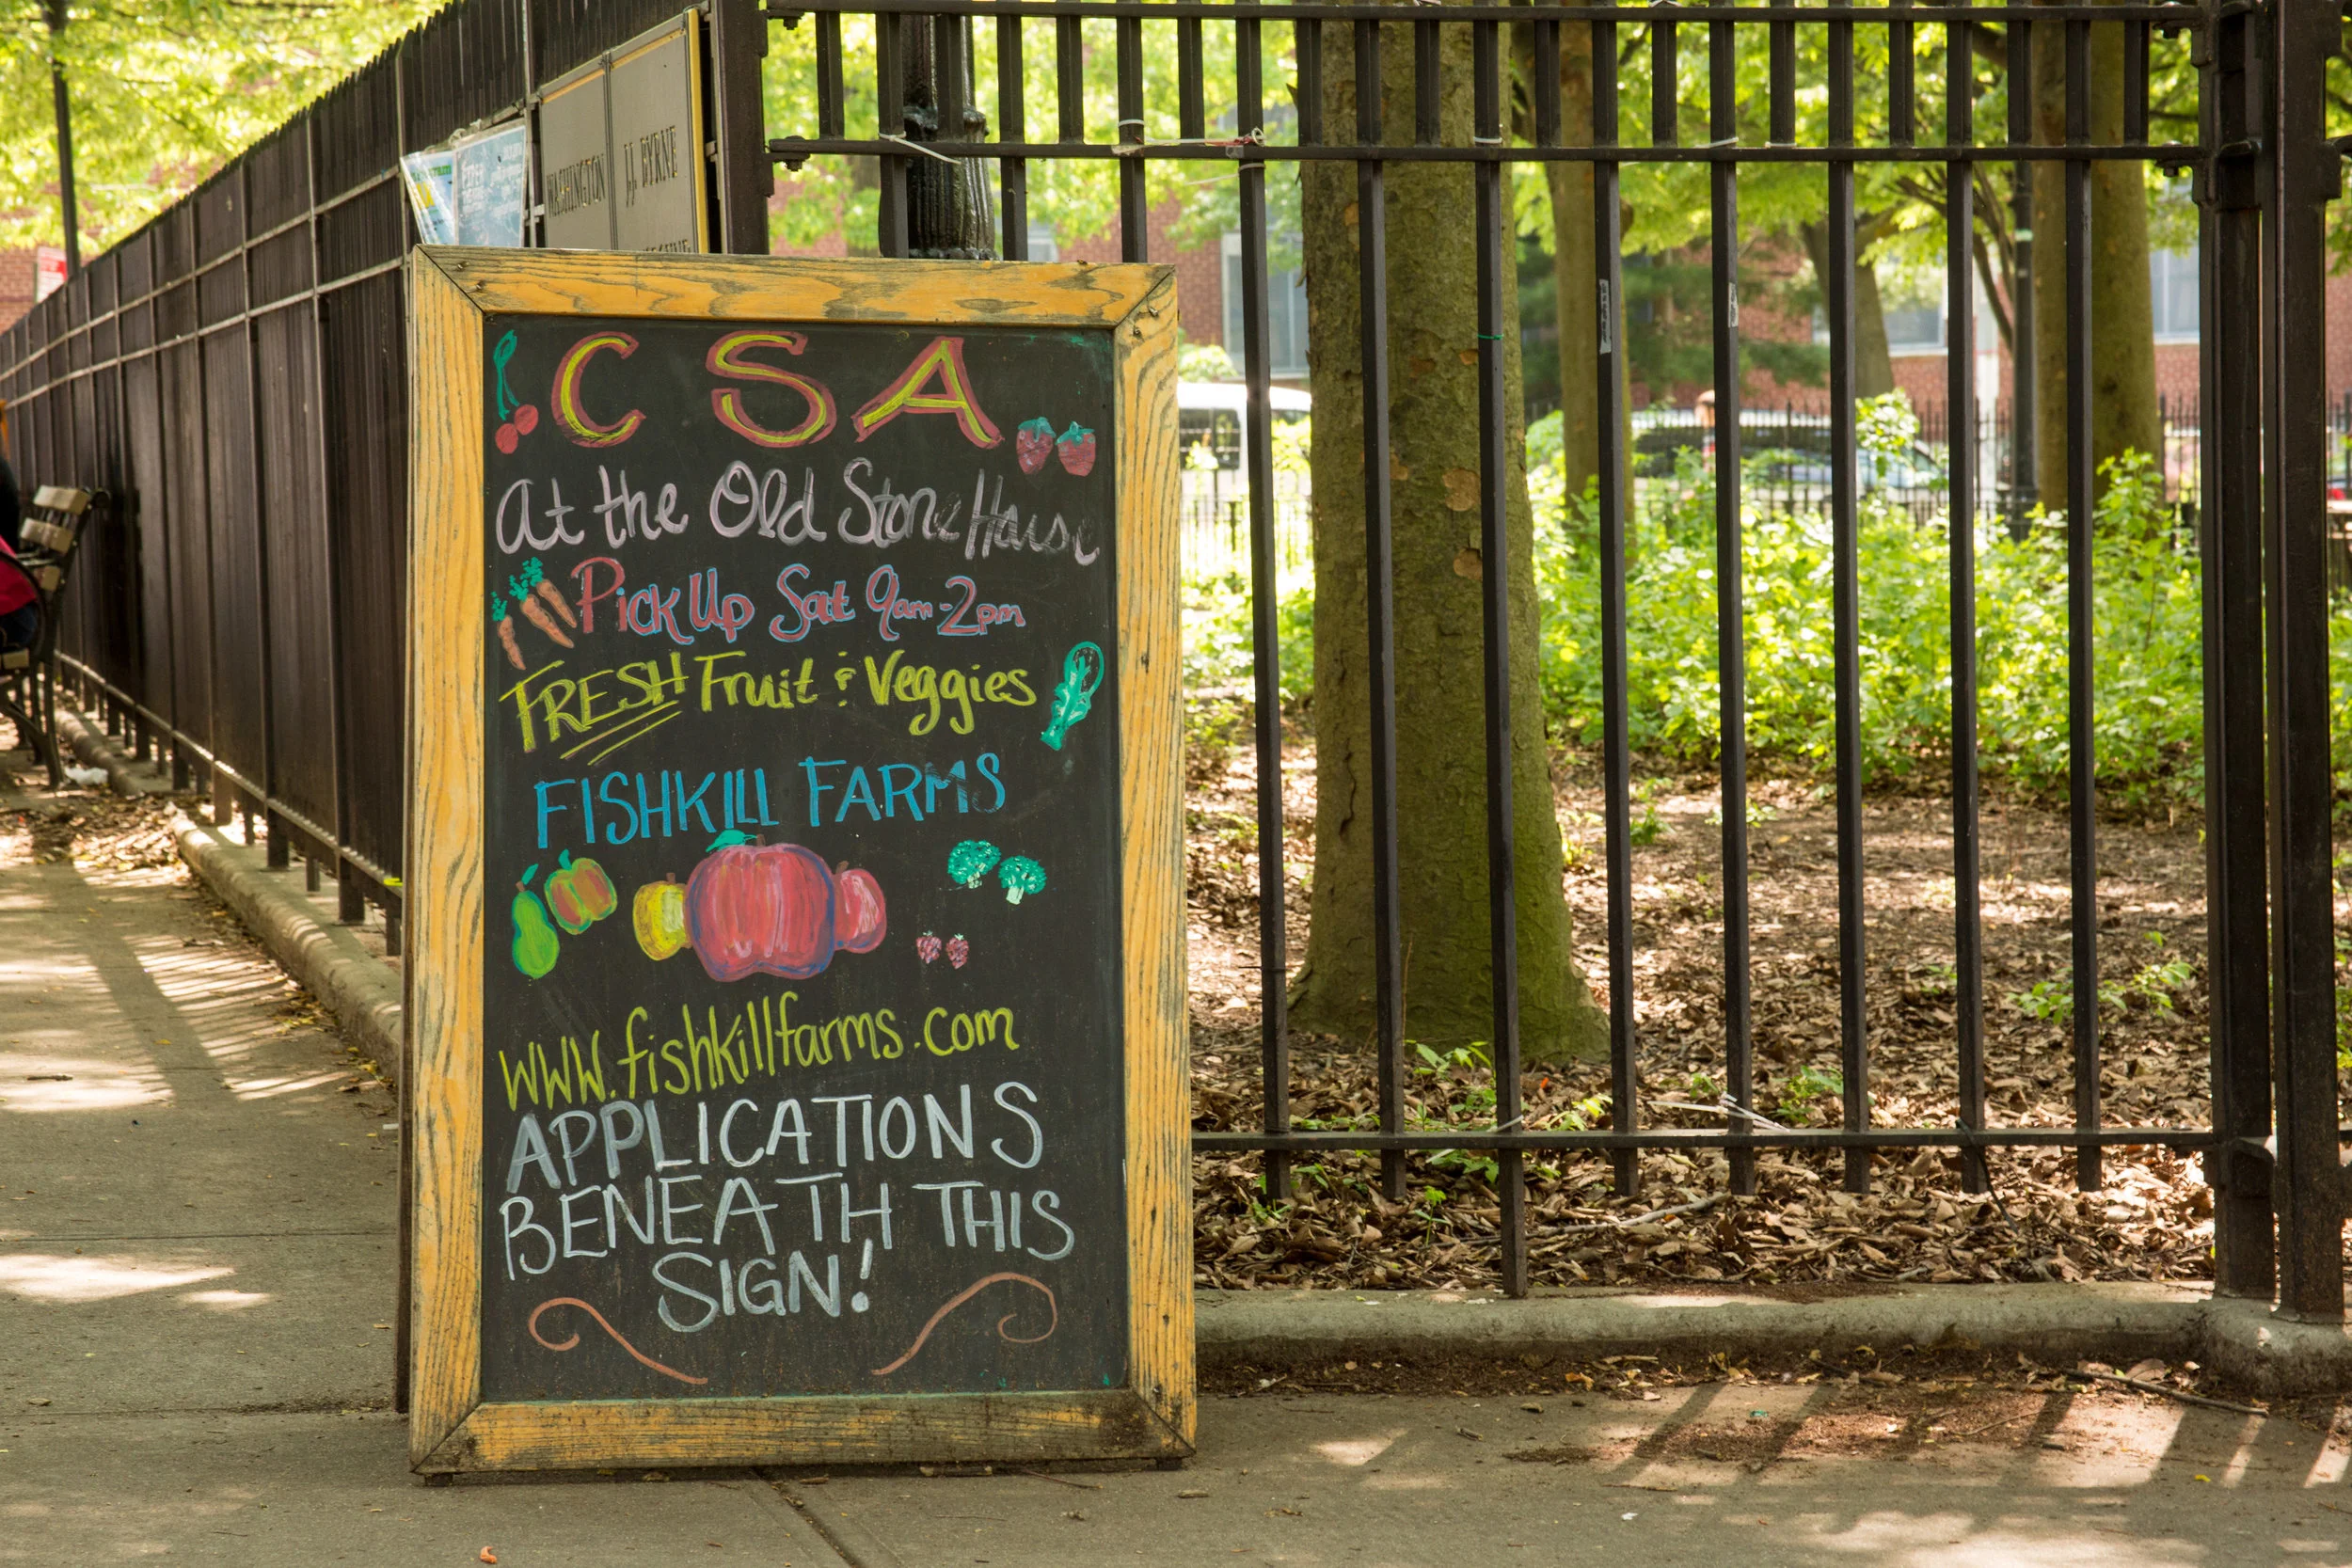 WASHINGTON
J.J. BYRNE
CSA
At the Old Stone House
Pick Up Sat 9am-2pm
FRESH Fruit & Veggies
FISHKILL FARMS
WWW.fishkillfarms.com
APPLICATIONS
BENEATH THIS
SIGN!